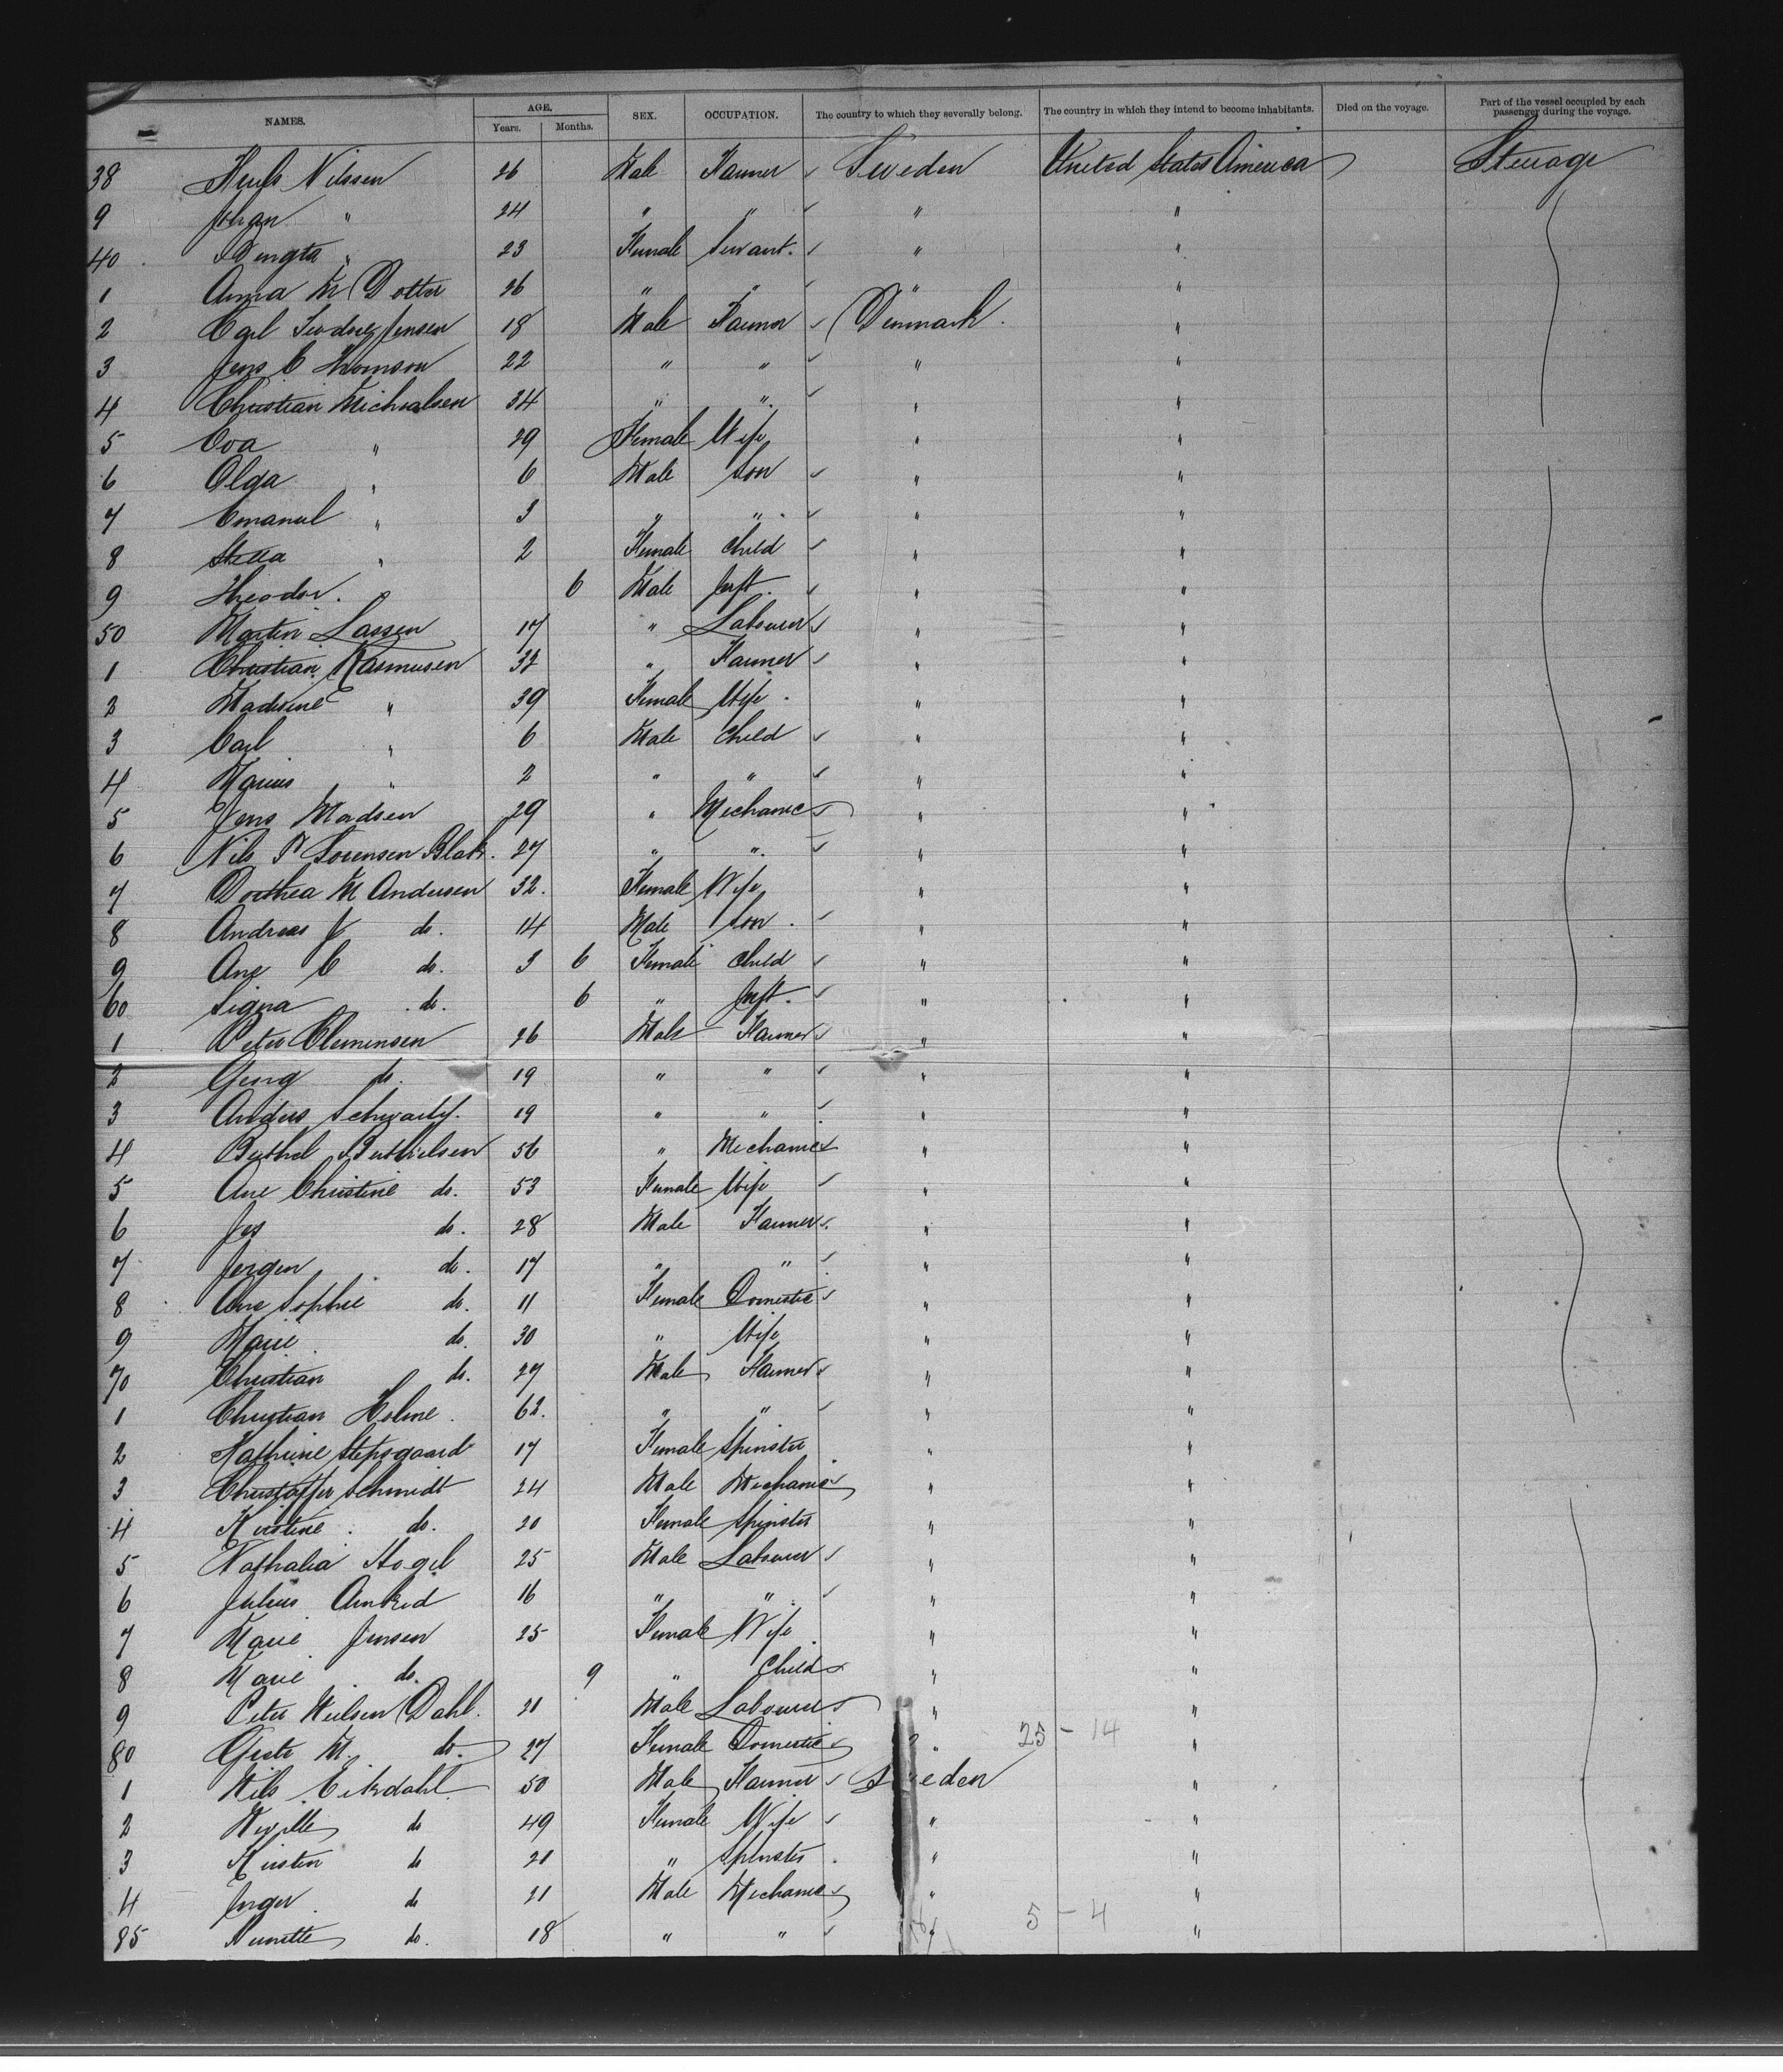 NAMES. AGE. SEX. OCCUPATION. The country to which they severally belong. The country in which they intend to become inhabitants. Died on the voyage. Part of the vessel occupied by each passenger during the voyage.
Years. Months.
38 Nilssen 26 Male Farmer Sweden United States America Steerage
9 Johan " 24 " " " "
40 Bengta " 23 Female Servant. " "
1 Anna M Dotter 26 " " " "
2 Carl Jensen 18 Male Farmer Denmark. "
3 Jens C Thomson 22 " " " "
4 Christian Michealsen 34 " " " "
5 Eva " 29 Female Wife " "
6 Olga " 6 Male Son " "
7 Emanuel " 3 " " " "
8 Stella " 2 Female Child " "
9 Theodor. " 6 Male Inft. " "
50 Martin Lassen 17 " Labourer " "
1 Christian Rasmusen 32 " Farmer " "
2 " 39 Female Wife " "
3 Carl " 6 Male Child " "
4 Marius " 2 " " " "
5 Jens Madsen 29 " Mechanic " "
6 Nils P Sorensen Blak. 27 " " " "
7 Dorthea M Andersen 32. Female Wife " "
8 Andreas J do. 14 Male Son " "
9 Ane C do. 3 6 Female Child " "
60 Signa do. 6 " Inft. " "
1 Peter Clemensen 26 Male Farmer " "
2 Georg do. 19 " " " "
3 Anders 19 " " " "
4 Berthel Berthelsen 56 " Mechanic " "
5 Ane Christine do. 53 Female Wife " "
6 Jes do. 28 Male Farmer " "
7 Jorgen do. 17 " " " "
8 Ane Sophie do. 11 Female Domestic " "
9 Marie do. 30 " Wife " "
70 Christian do. 27 Male Farmer " "
1 Christian Holme. 62. " " " "
2 Kathrine Stepsgaard 17 Female Spinster " "
3 Christoffer Schmidt 24 Male Mechanic " "
4 Kirstine do. 20 Female Spinster " "
5 Nathalia 25 Male Labourer " "
6 Julius 16 " " " "
7 Marie Jensen 25 Female Wife " "
8 Marie do. 9 " Child " "
9 Peter Nielsen Dahl. 21 Male Labourer " "
80 M. do. 27 Female Domestic " 25 - 14 "
1 Nils Eikdahl 50 Male Farmer Sweden "
2 do 49 Female Wife " "
3 Kirsten do 21 " Spinster " "
4 Inger do 21 Male Mechanic " "
85 do. 18 " " " 5 - 4 "